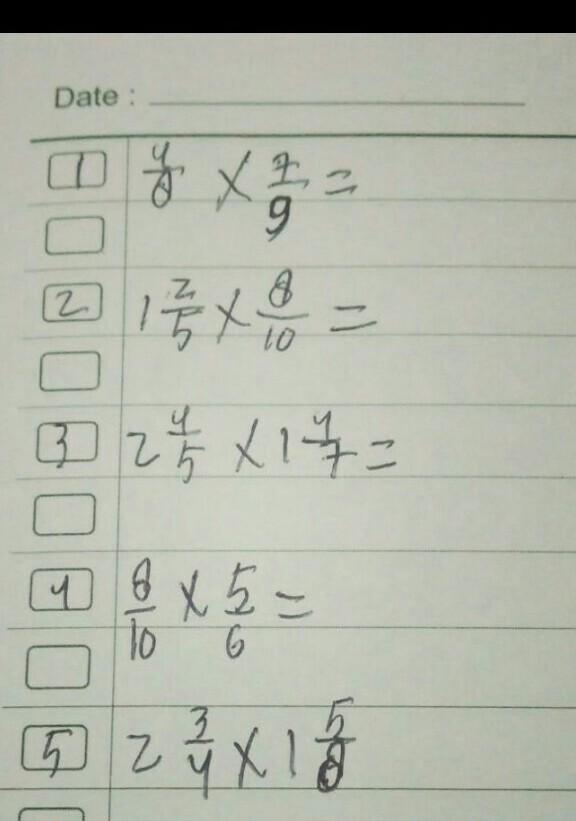 Date :
1 4/8 × 7/9 =
2 1 2/5 × 8/10 =
3 2 4/5 × 1 4/7 =
4 8/10 × 5/6 =
5 2 3/4 × 1 5/8